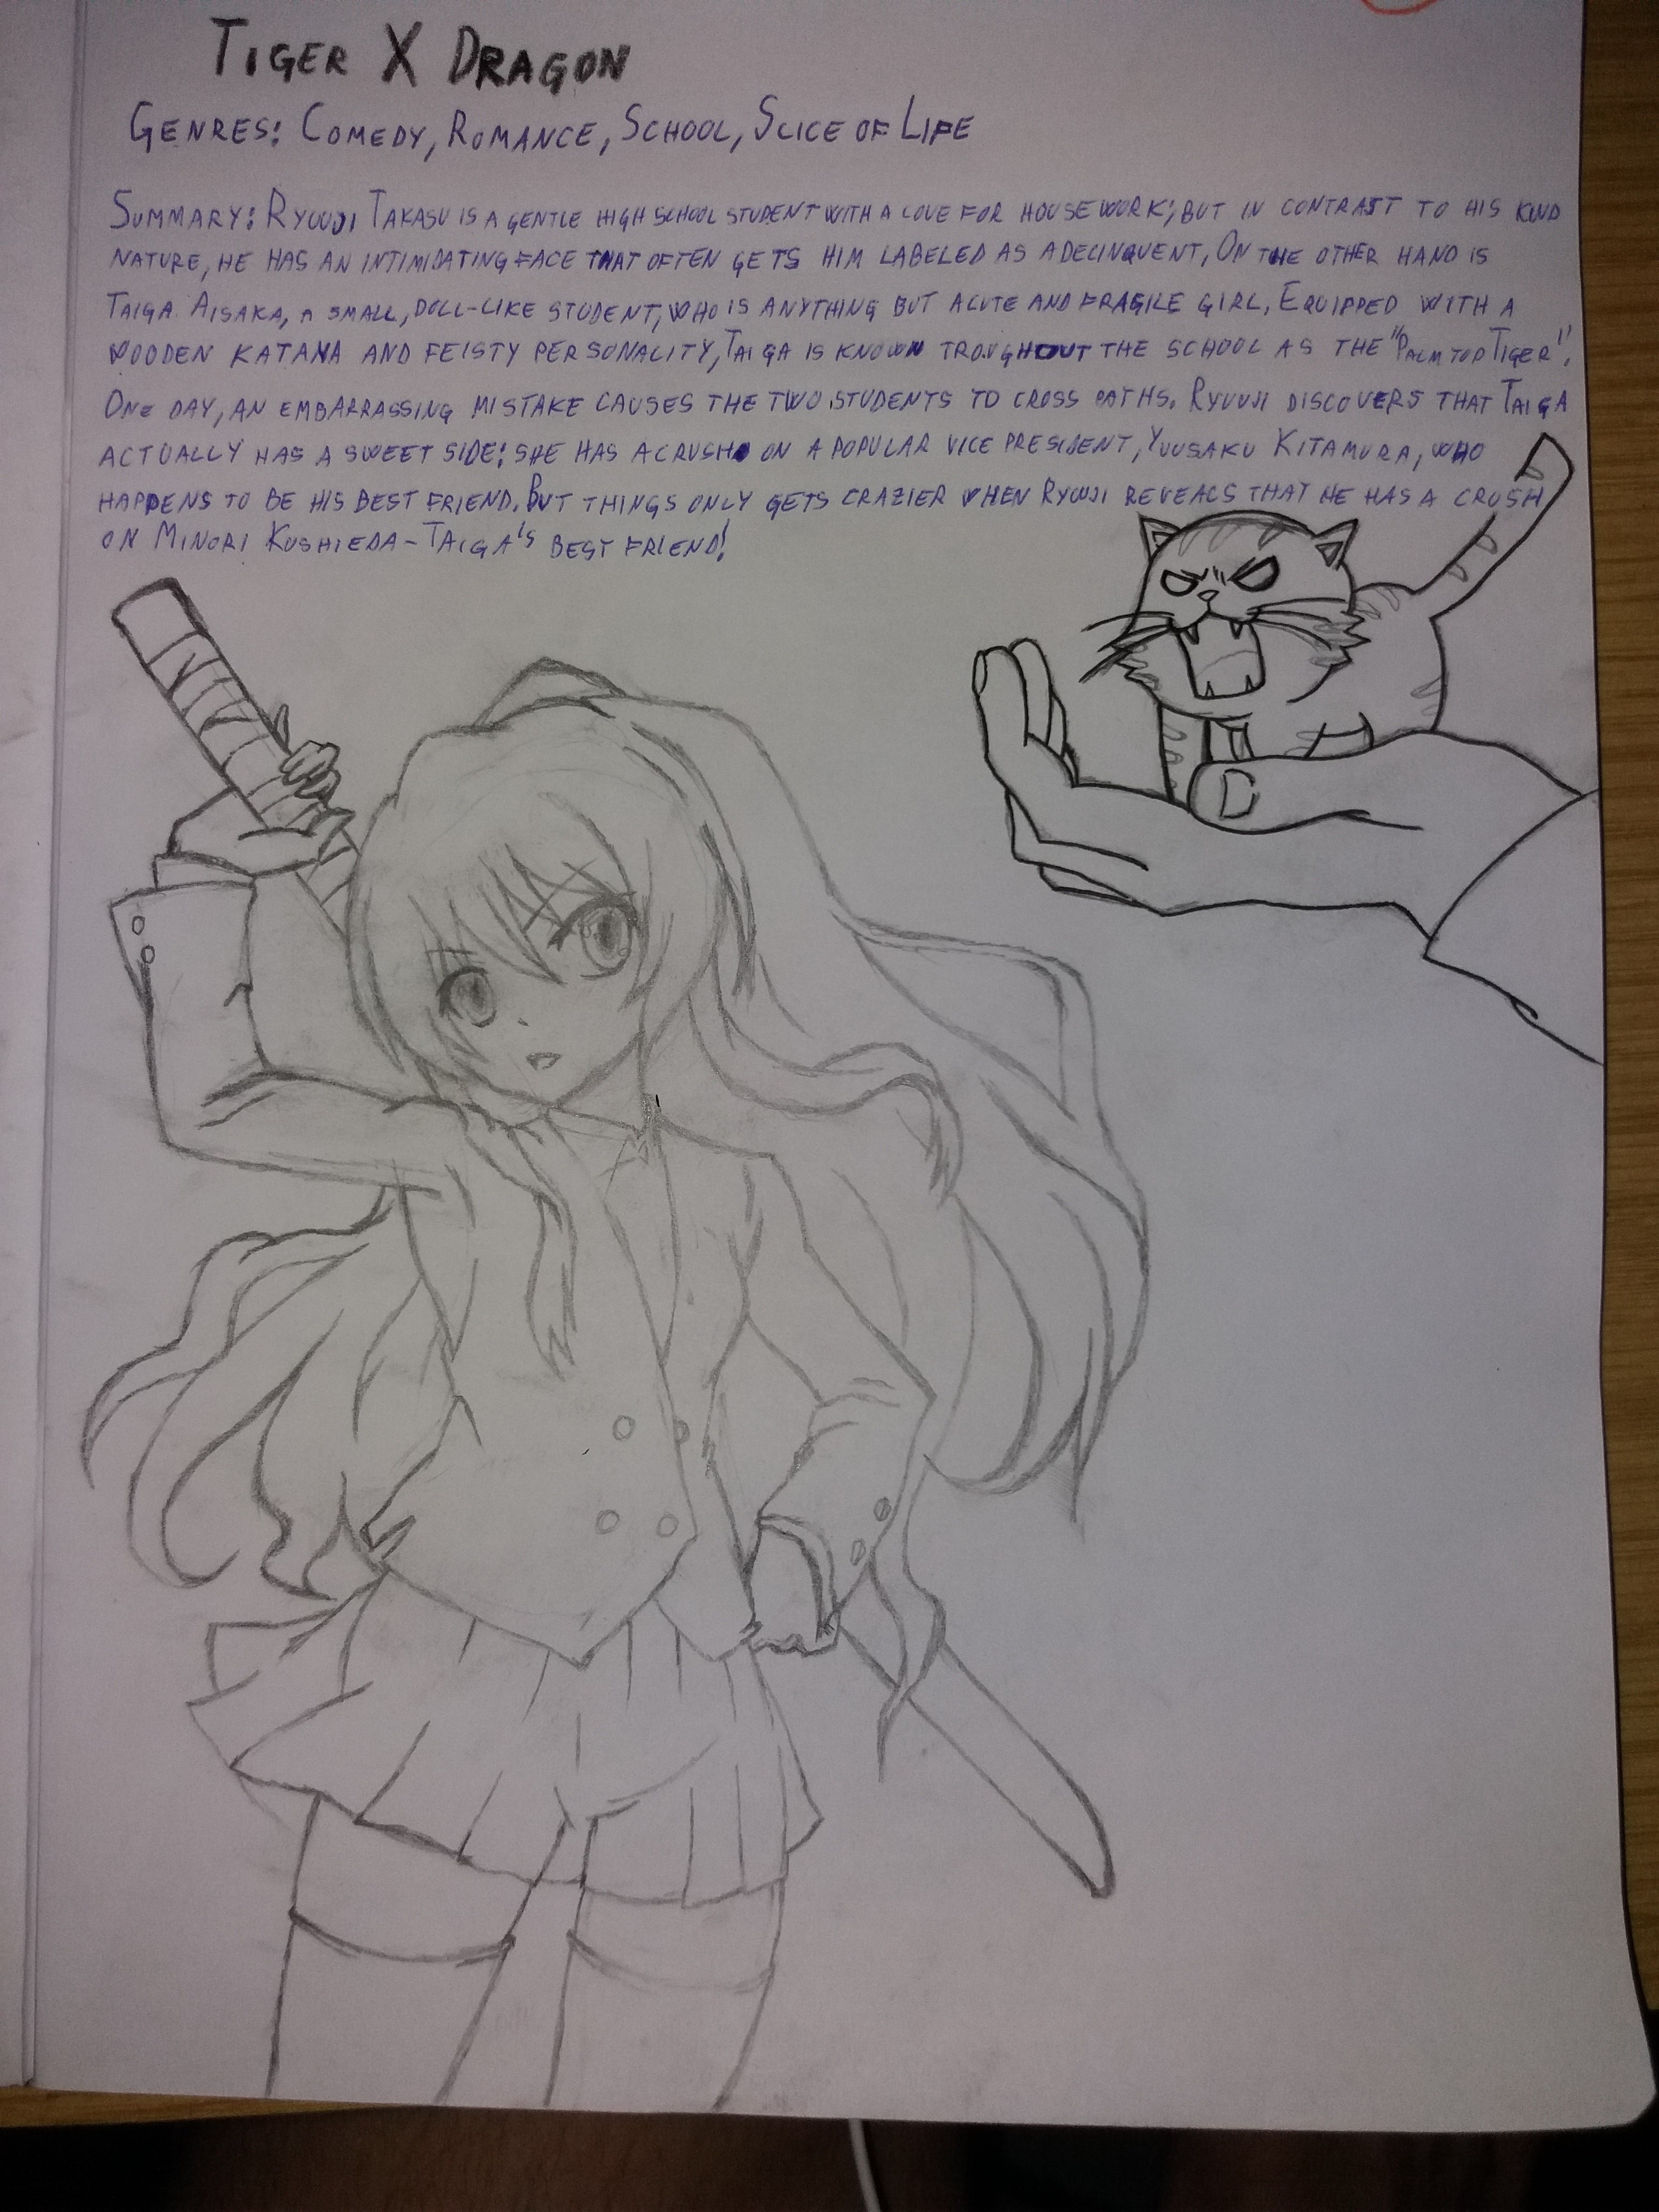 TIGER X DRAGON
GENRES: COMEDY, ROMANCE, SCHOOL, SLICE OF LIFE
SUMMARY: RYUUJI TAKASU IS A GENTLE HIGH SCHOOL STUDENT WITH A LOVE FOR HOUSEWORK; BUT IN CONTRAST TO HIS KIND
NATURE, HE HAS AN INTIMIDATING FACE THAT OFTEN GETS HIM LABELED AS A DELINQUENT, ON THE OTHER HAND IS
TAIGA AISAKA, A SMALL, DOLL-LIKE STUDENT, WHO IS ANYTHING BUT A CUTE AND FRAGILE GIRL. EQUIPPED WITH A
WOODEN KATANA AND FEISTY PERSONALITY, TAIGA IS KNOWN TROUGHOUT THE SCHOOL AS THE "PALM TOP TIGER".
ONE DAY, AN EMBARRASSING MISTAKE CAUSES THE TWO STUDENTS TO CROSS PATHS. RYUUJI DISCOVERS THAT TAIGA
ACTUALLY HAS A SWEET SIDE: SHE HAS A CRUSH ON A POPULAR VICE PRESIDENT, YUUSAKU KITAMURA, WHO
HAPPENS TO BE HIS BEST FRIEND. BUT THINGS ONLY GETS CRAZIER WHEN RYUUJI REVEALS THAT HE HAS A CRUSH
ON MINORI KUSHIEDA-TAIGA'S BEST FRIEND!